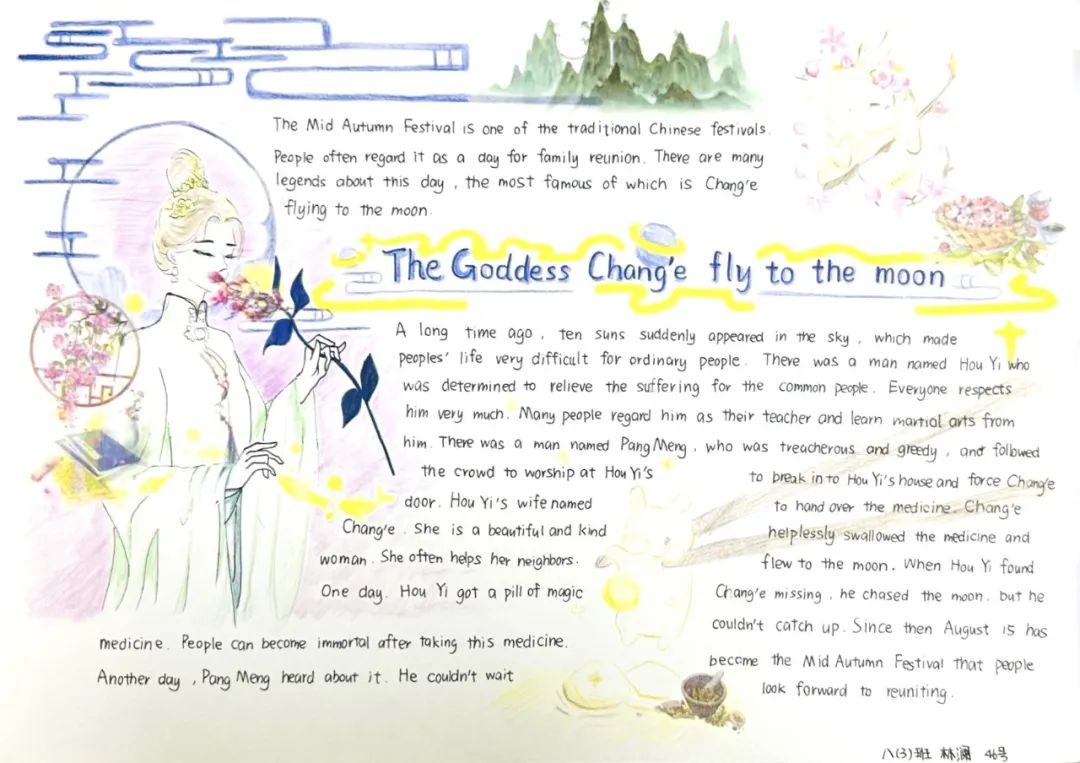 The Mid Autumn Festival is one of the traditional Chinese festivals.
People often regard it as a day for family reunion. There are many
legends about this day, the most famous of which is Chang'e
flying to the moon.
The Goddess Chang'e fly to the moon
A long time ago, ten suns suddenly appeared in the sky, which made
peoples' life very difficult for ordinary people. There was a man named Hou Yi who
was determined to relieve the suffering for the common people. Everyone respects
him very much. Many people regard him as their teacher and learn martial arts from
him. There was a man named Pang Meng, who was treacherous and greedy, and followed
the crowd to worship at Hou Yi's
door. Hou Yi's wife named
Chang'e. She is a beautiful and kind
woman. She often helps her neighbors.
One day. Hou Yi got a pill of magic
medicine. People can become immortal after taking this medicine.
Another day, Pang Meng heard about it. He couldn't wait
to break in to Hou Yi's house and force Chang'e
to hand over the medicine. Chang'e
helplessly swallowed the medicine and
flew to the moon. When Hou Yi found
Chang'e missing, he chased the moon. but he
couldn't catch up. Since then August 15 has
become the Mid Autumn Festival that people
look forward to reuniting.
八(3)班 林澜 46号